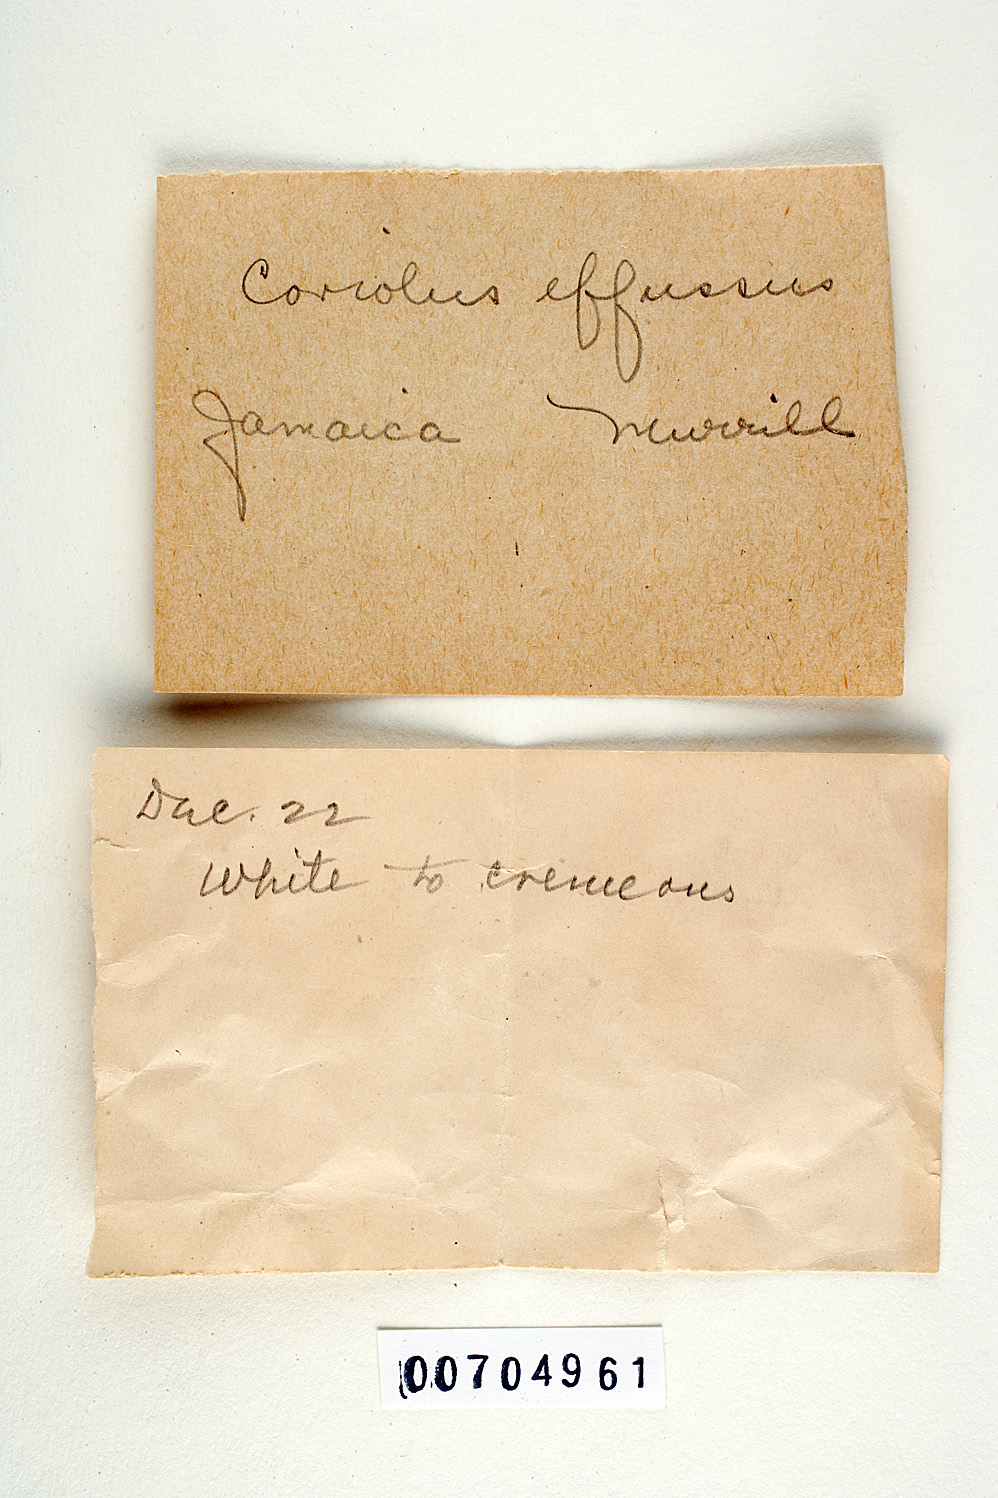 Coriolus effussus
Jamaica Murrill
Dec. 22
White to cremeous
00704961